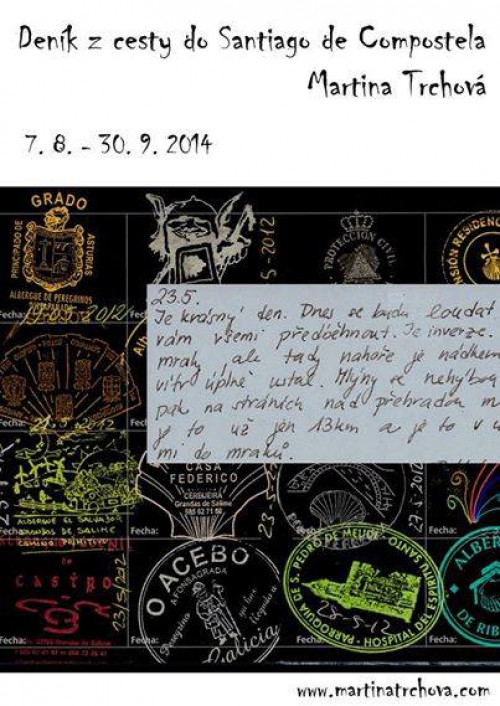 Deník z cesty do Santiago de Compostela
Martina Trchová
7. 8. - 30. 9. 2014
GRADO
PRINCIPADO DE ASTURIAS
ALBERGUE DE PEREGRINOS
Fecha: 19-05-2012
5-2012
PROTECCIÓN CIVIL
PENSIÓN RESIDENC
23.5.
Je krásný den. Dnes se budu loudat
vám všemi předběhnout. Je inverze.
mraky, ale tady nahoře je nádhern
vítr úplně ustal. Mlýny se nehýbou
pak na stráních nad přehradou m
je to už jen 13km a je to v ú
mi do mraků.
Fecha:
Fecha:
CASA
FEDERICO
CEREIJEIRA
Grandas de Salime
985 62 71 68
ALBERGUE EL SALVADOR
GRANDAS DE SALIME
CAMINO PRIMITIVO
Fecha:
Fecha:
Fecha:
Castro
23/5/2012
O ACEBO
A FONSAGRADA
Peregrino
Galicia
PARROQUIA DE S. PEDRO DE MELIDE
HOSPITAL DEL ESPIRITU SANTO
25-5-12
ALBER
DE RIB
Fecha:
www.martinatrchova.com